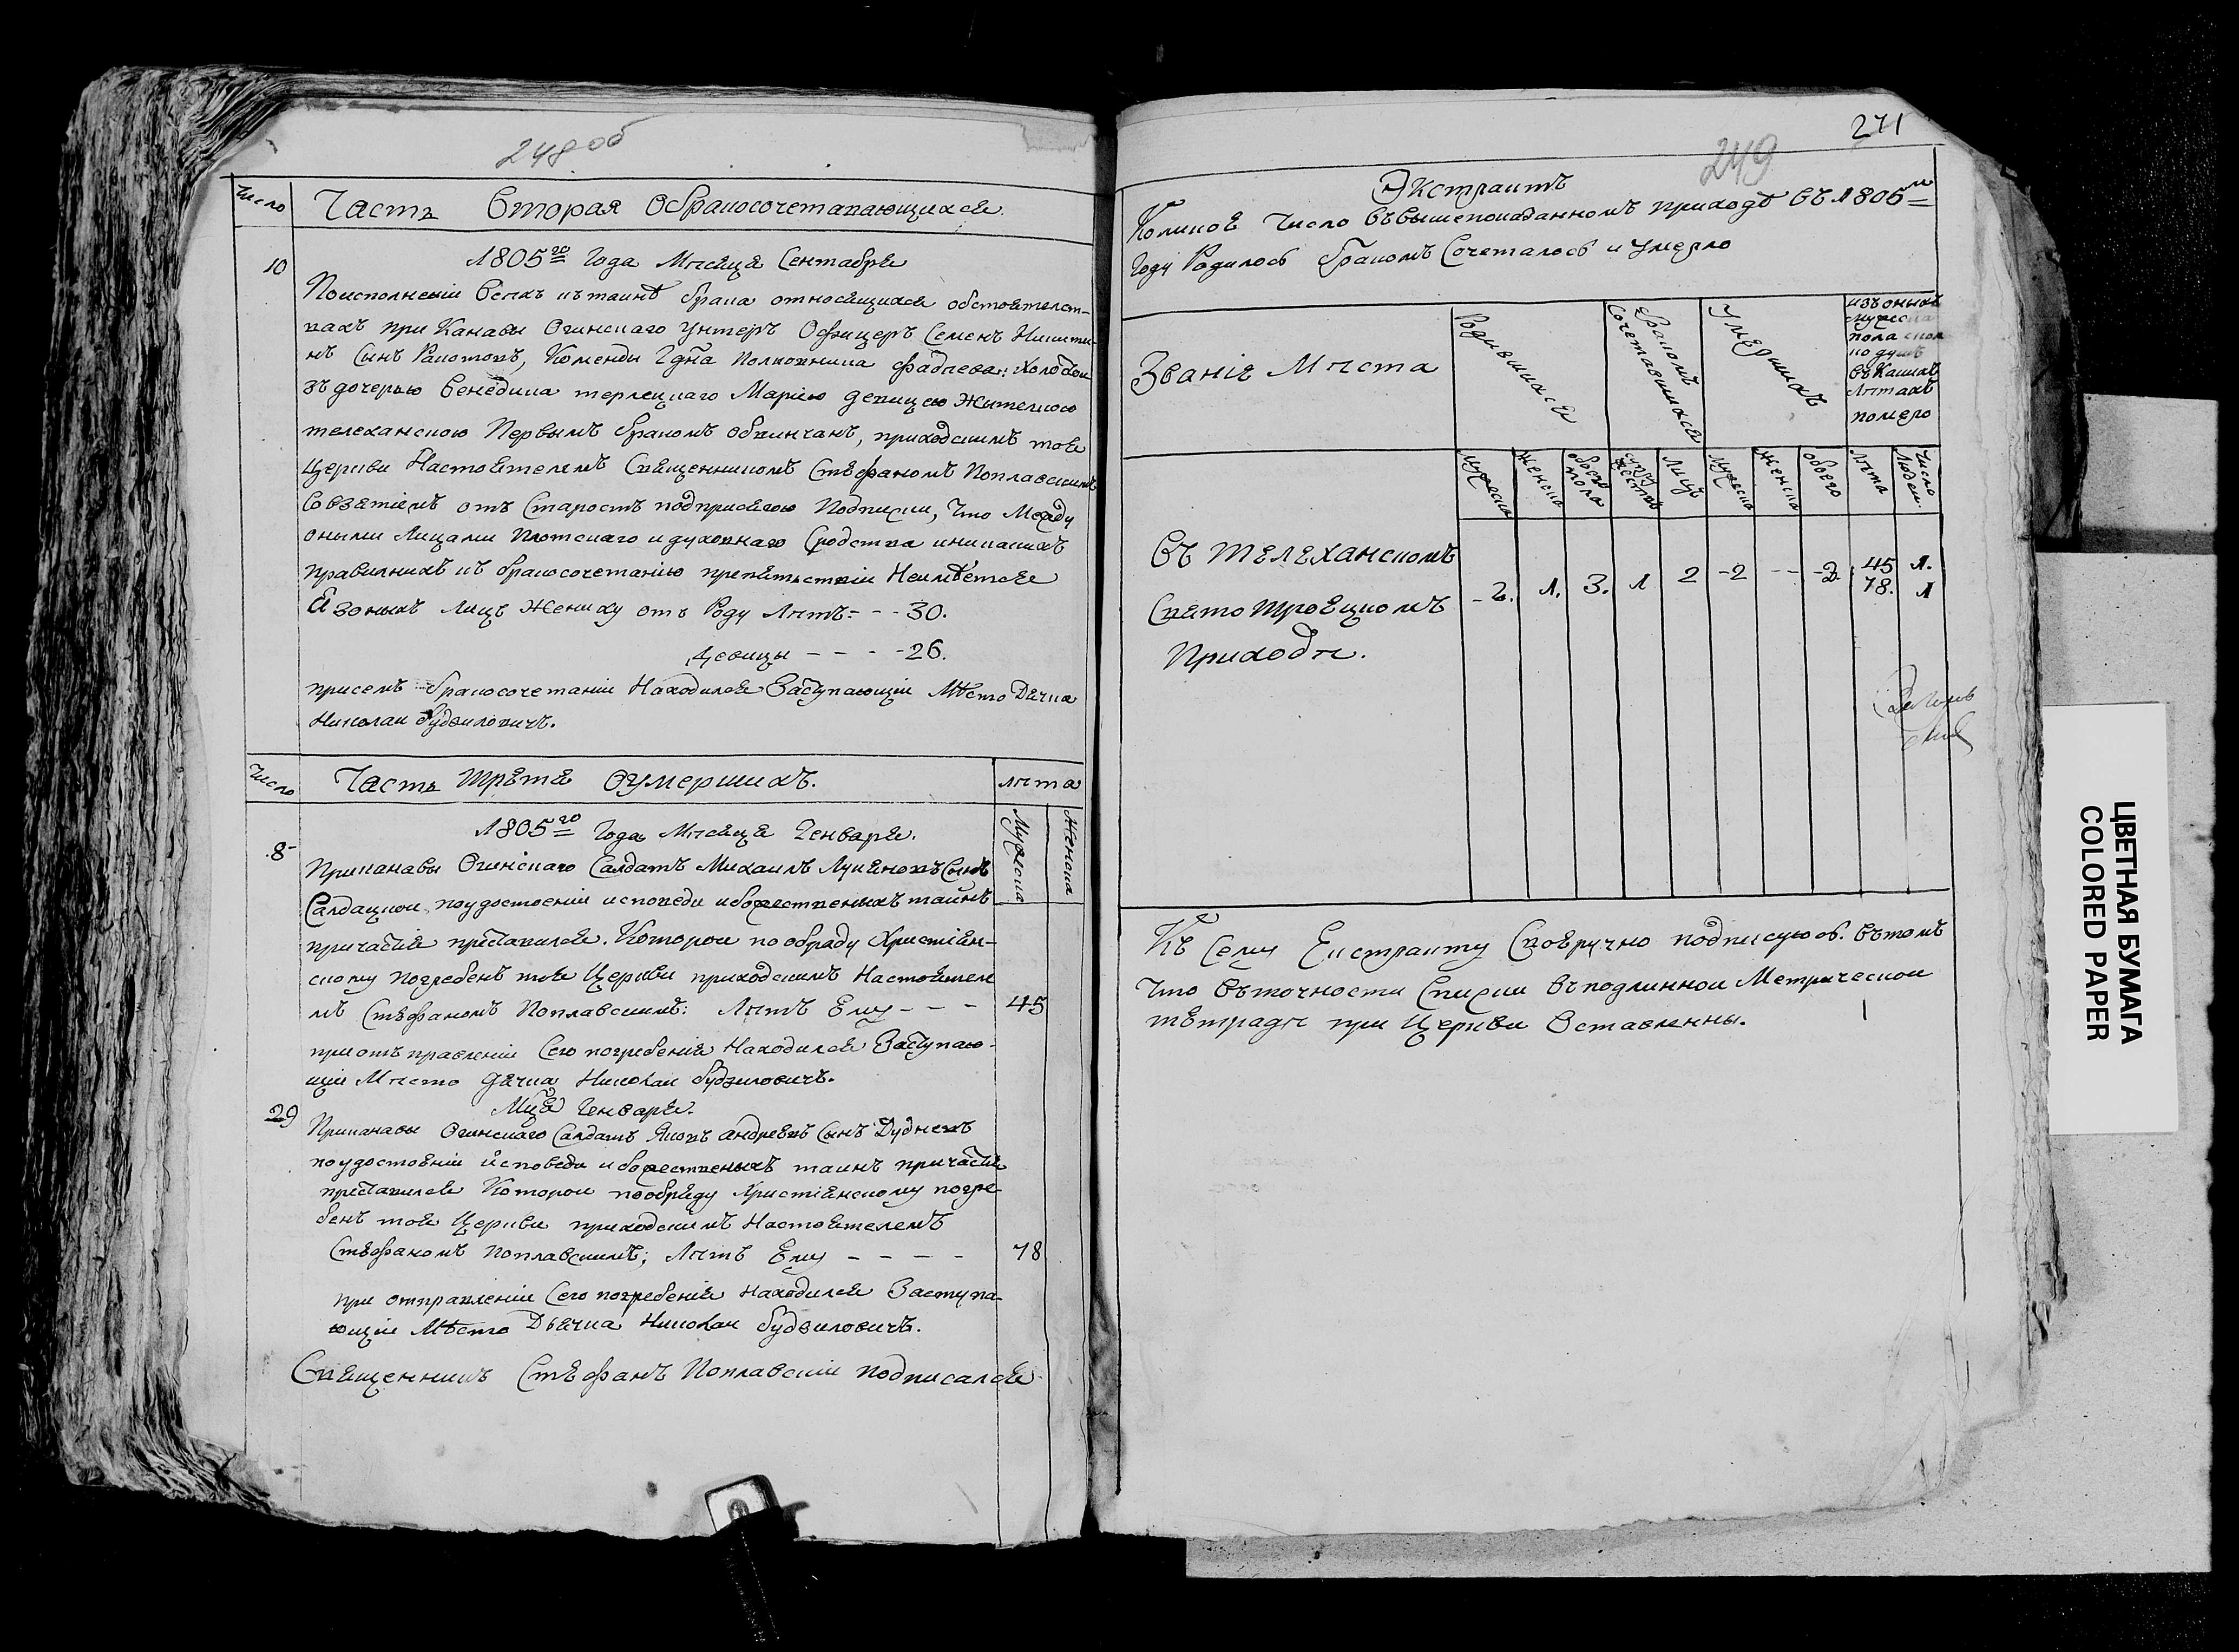 248 об
Число
Часть Вторая Обракосочетавающихся.
1805го Года Мѣсяця Сентабря
10
Поисполненіи Всѣхъ къ таинѣ брака относящихся обстоятелст-
вахъ при Канавы Огинскаго унтеръ Офицеръ Семенъ Никити-
нъ Сынъ, Команды Полковника Фадеева
зъ дочерью Венедика терлецкаго Маріею девицею Жытелкою
телеханскою Первымъ бракомъ обвинчанъ, приходскимъ тоя
Церкви Настоятелемъ Священникомъ Стефаномъ Поплавскимъ
Совзятіемъ отъ Старостъ подприсягою Подписки, Что Между
оными Лицами Плотскаго и духовнаго Сродства иникакихъ
Правилнихъ къ бракосочетанію препятьствіи Неимѣется
Азоныхъ Лицъ Жениху отъ Роду Лѣтъ: - - 30.
Девицы - - - - 26.
присемъ бракосочетаніи Находился Заступающіи Мѣсто Дячка
Николаи Будзиловичъ.
Число
Часть Третя Оумершихъ.
лѣта
Мужеска
Женска
1805го Года Мѣсяця Генваря.
8
Приканавы Огинскаго Салдатъ Михаилъ Лукяновъ Сынъ
Салдацкои, поудостоеніи исповеди ибожественыхъ таинъ
причастія преставился. Которои по обраду Христіян-
скому Погребенъ тоя Церкви приходскимъ Настоятеле
мъ Стефаномъ Поплавскимъ: Лѣтъ Ему - - - 45
при отъправленіи Сего погребенія Находился Заступаю-
щіи Мѣсто дячка Николаи Будзиловичъ.
Мця Генваря.
29
Приканавы Огинскаго Салдатъ Яковъ андреевъ Сынъ
поудостоеніи исповеди ибожественыхъ таинъ причастія
преставился Которои пообряду Христіянскому погре-
бенъ тоя Церкви приходскимъ Настоятелемъ
Стефаномъ Поплавскимъ; Лѣтъ Ему - - - - 78
при отправленіи Сего погребенія Находился Заступа-
ющіи Мѣсто Дьячка Николаи Будзиловичъ.
Священникъ Стефанъ Поплавскіи подписался
271
249
Экстрактъ
Коликое Число Въвышепоказанномъ приходѣ Въ 1805м
Году Родилось Бракомъ Сочеталось и Умерло
Званіе Мѣста
Родившихся
Бракомъ
Сочетавшихся
Умершихъ
изъ оныхъ
мужеска
пола
по душъ
въ Какихъ
Лѣтахъ
помѣро
мужеска
женска
обоего
пола
супру
жествъ
Лицъ
мужеска
женска
обоего
лѣта
Число
Людеи.
Въ Телеханскомъ
Свято Троецкомъ
Приходѣ.
- 2. 1. 3. 1 2 - 2 - - - 2. 45 1.
78. 1
Къ Сему Екстракту Своеручно подписуюсь. Вътомъ
Что Въточности Списки Въ подлинной Метрической
тетрадѣ при Церкви Оставленны.
ЦВЕТНАЯ БУМАГА
COLORED PAPER